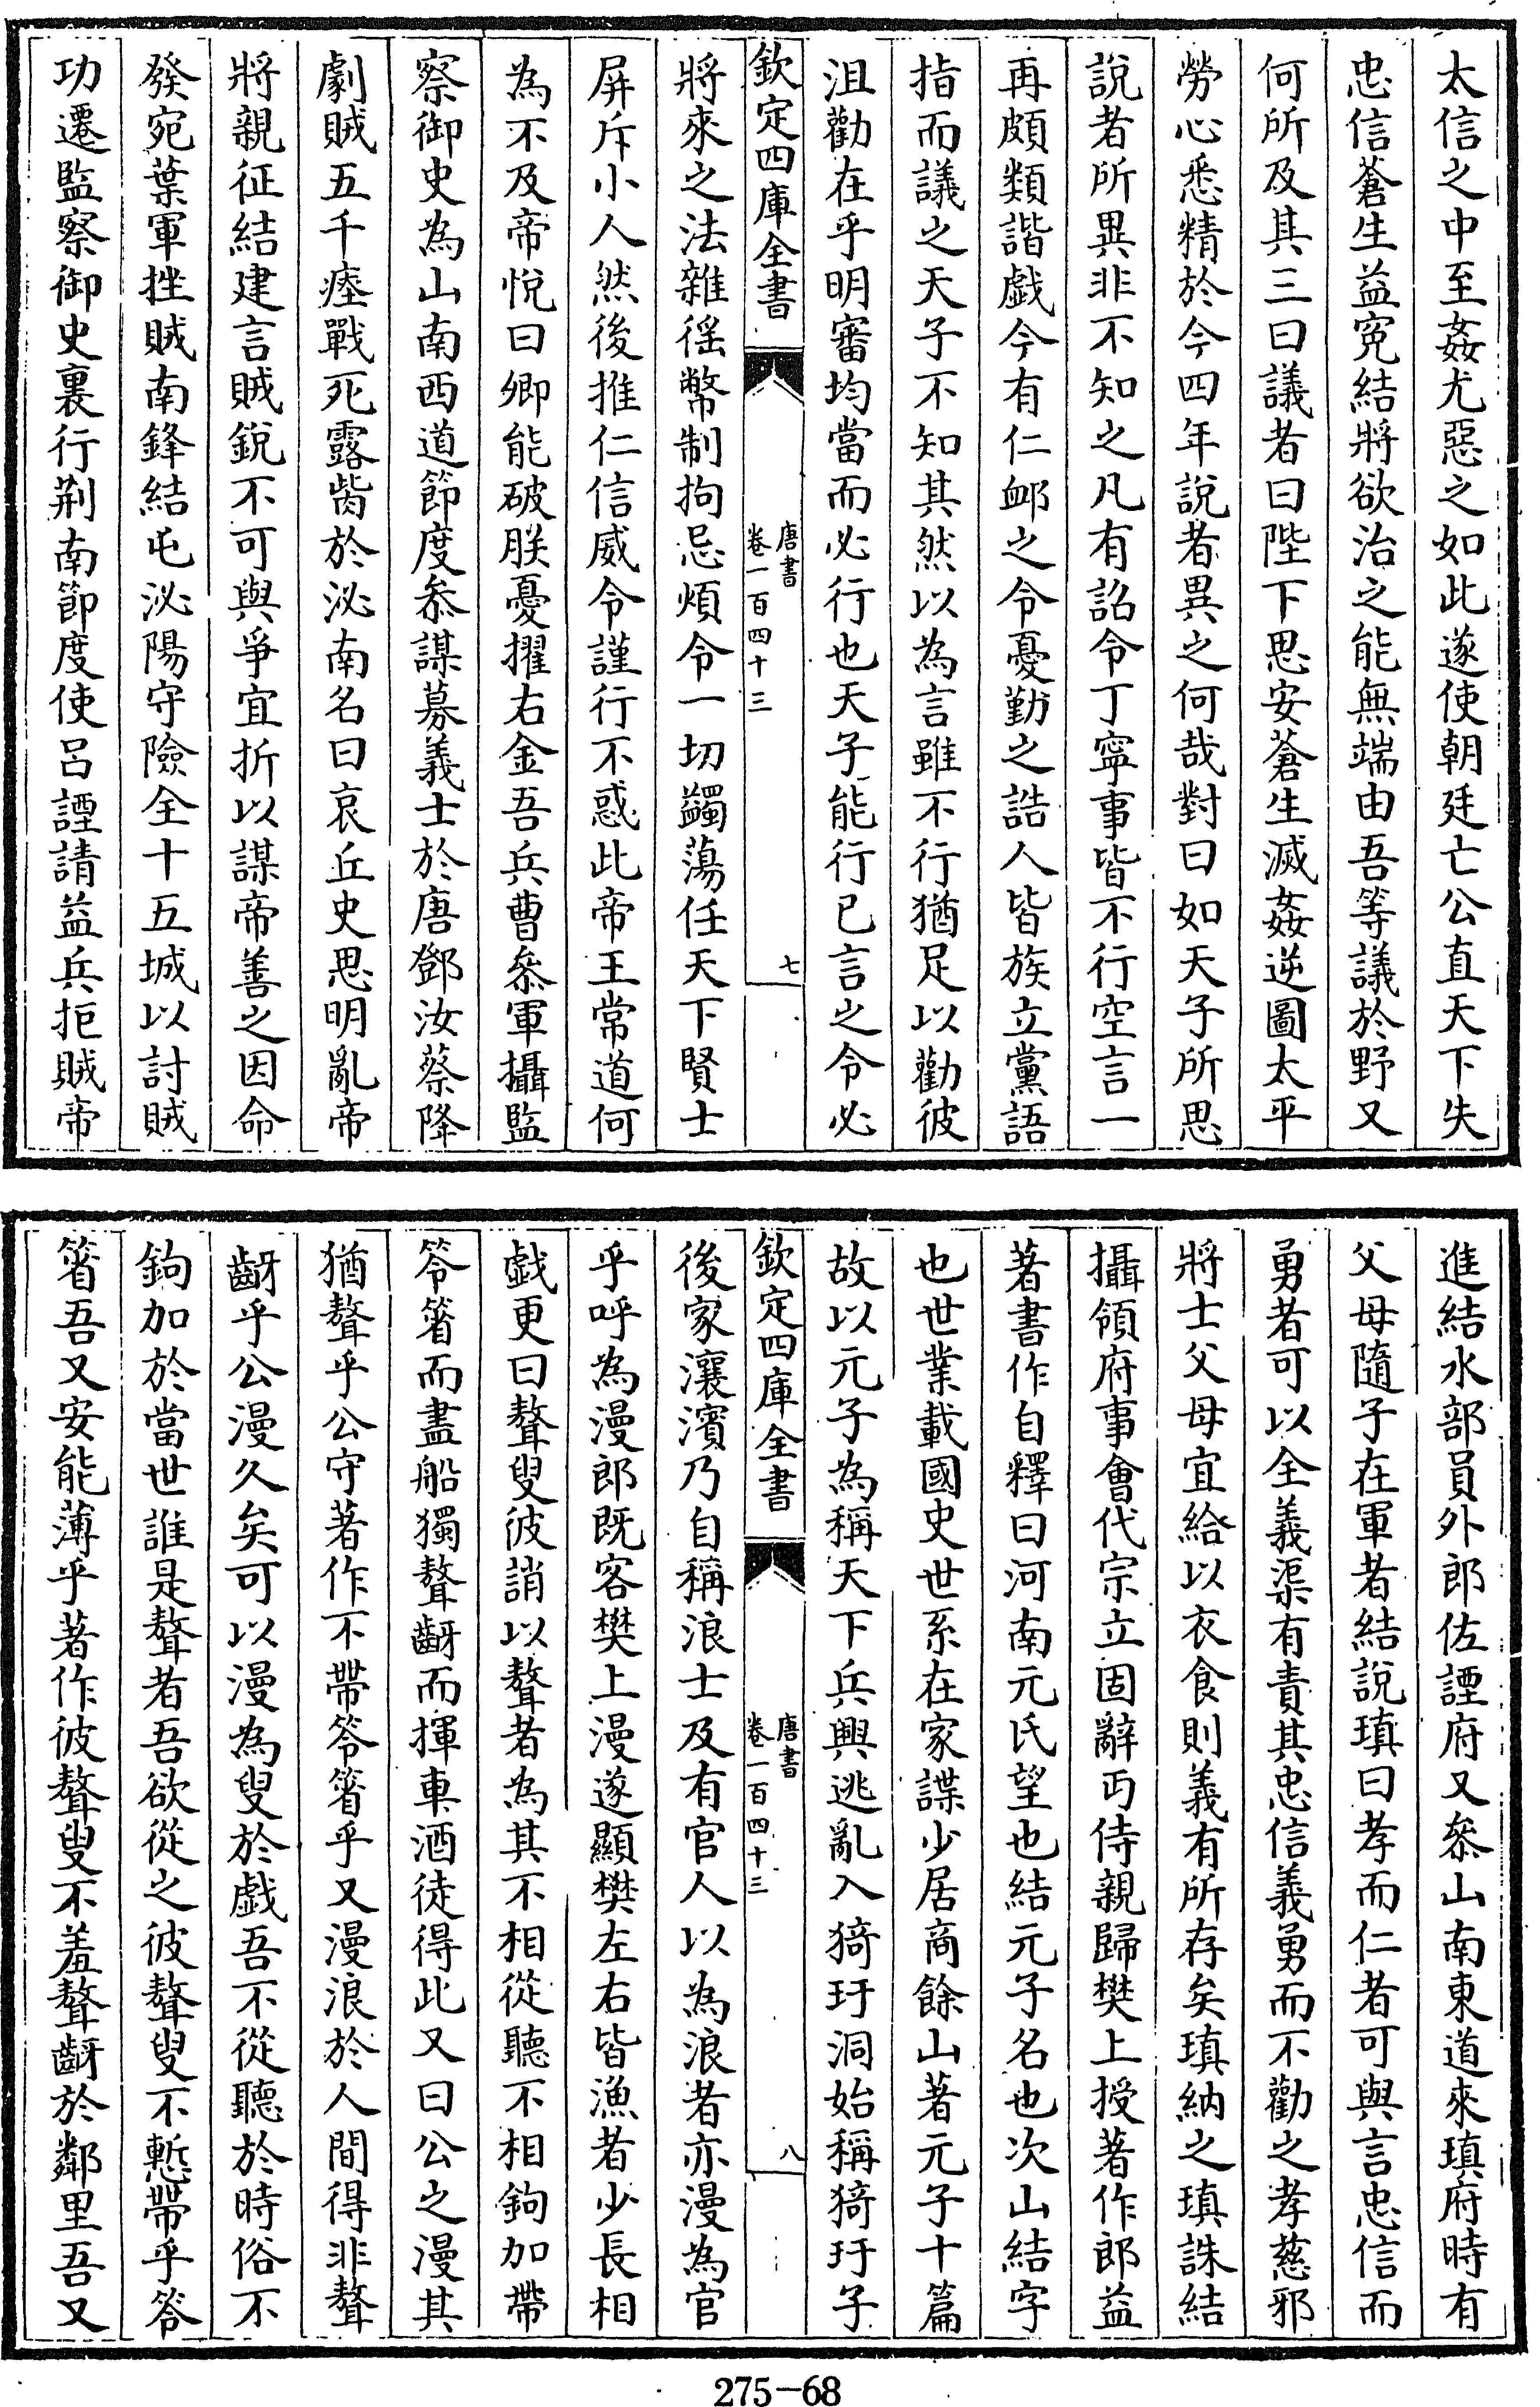 太信之中至姦尤惡之如此遂使朝廷亡公直天下失
忠信蒼生益寃結將欲治之能無端由吾等議於野又
何所及其三曰議者曰陛下思安蒼生滅姦逆圖太平
勞心悉精於今四年說者異之何哉對曰如天子所思
說者所異非不知之凡有詔令丁寧事皆不行空言一
再頗類諧戯今有仁䘏之令憂勤之誥人皆族立黨語
指而議之天子不知其然以為言雖不行猶足以勸彼
沮勸在乎明審均當而必行也天子能行已言之令必
欽定四庫全書
唐書
卷一百四十三
七
將來之法雜徭幣制拘忌煩令一切蠲蕩任天下賢士
屏斥小人然後推仁信威令謹行不惑此帝王常道何
為不及帝悅曰卿能破朕憂擢右金吾兵曹叅軍攝監
察御史為山南西道節度叅謀募義士於唐鄧汝蔡降
劇賊五千瘞戰死露胔於泌南名曰哀丘史思明亂帝
將親征結建言賊銳不可與爭宜折以謀帝善之因命
發宛葉軍挫賊南鋒結屯泌陽守險全十五城以討賊
功遷監察御史裏行荆南節度使呂諲請益兵拒賊帝
進結水部員外郎佐諲府又叅山南東道來瑱府時有
父母隨子在軍者結說瑱曰孝而仁者可與言忠信而
勇者可以全義渠有責其忠信義勇而不勸之孝慈邪
將士父母宜給以衣食則義有所存矣瑱納之瑱誅結
攝領府事會代宗立固辭丐侍親歸樊上授著作郎益
著書作自釋曰河南元氏望也結元子名也次山結字
也世業載國史世系在家諜少居商餘山著元子十篇
故以元子為稱天下兵興逃亂入猗玗洞始稱猗玗子
欽定四庫全書
唐書
卷一百四十三
八
後家瀼濱乃自稱浪士及有官人以為浪者亦漫為官
乎呼為漫郎既客樊上漫遂顯樊左右皆漁者少長相
戯更曰聱叟彼誚以聱者為其不相從聽不相鉤加帶
笭箵而盡船獨聱齖而揮車酒徒得此又曰公之漫其
猶聱乎公守著作不帶笭箵乎又漫浪於人間得非聱
齖乎公漫久矣可以漫為叟於戯吾不從聽於時俗不
鉤加於當世誰是聱者吾欲從之彼聱叟不慙帶乎笭
箵吾又安能薄乎著作彼聱叟不羞聱齖於鄰里吾又
275-68